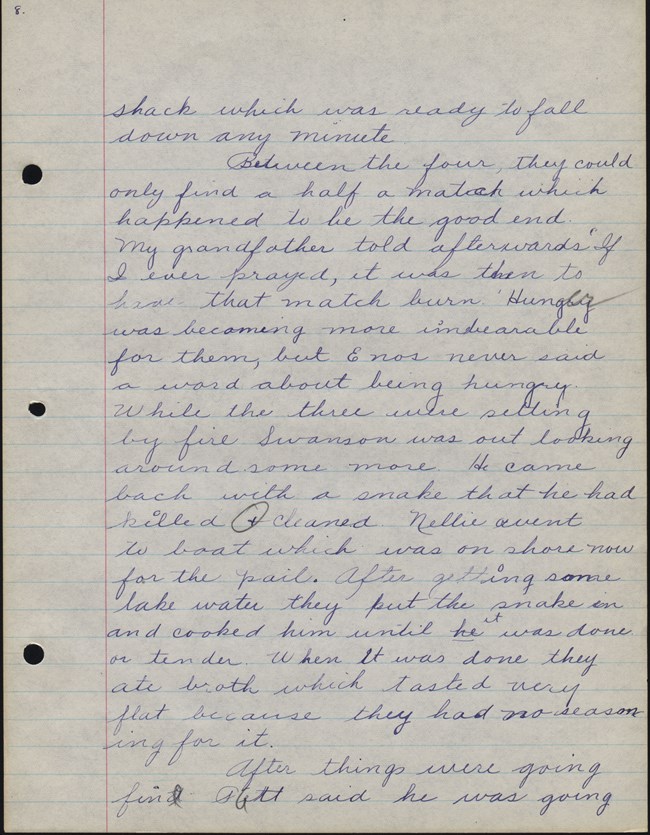 8.
shack which was ready to fall
down any minute
Between the four, they could
only find a half a match which
happened to be the good end.
My grandfather told afterwards "If
I ever prayed, it was then to
have that match burn." Hungry
was becoming more unbearable
for them, but Enos never said
a word about being hungry.
While the three were sitting
by fire Swanson was out looking
around some more. He came
back with a snake that he had
killed + cleaned. Nellie went
to boat which was on shore now
for the pail. After getting some
lake water they put the snake in
and cooked him until he it was done
or tender. When it was done they
ate broth which tasted very
flat because they had no season
ing for it.
After things were going
find said he was going